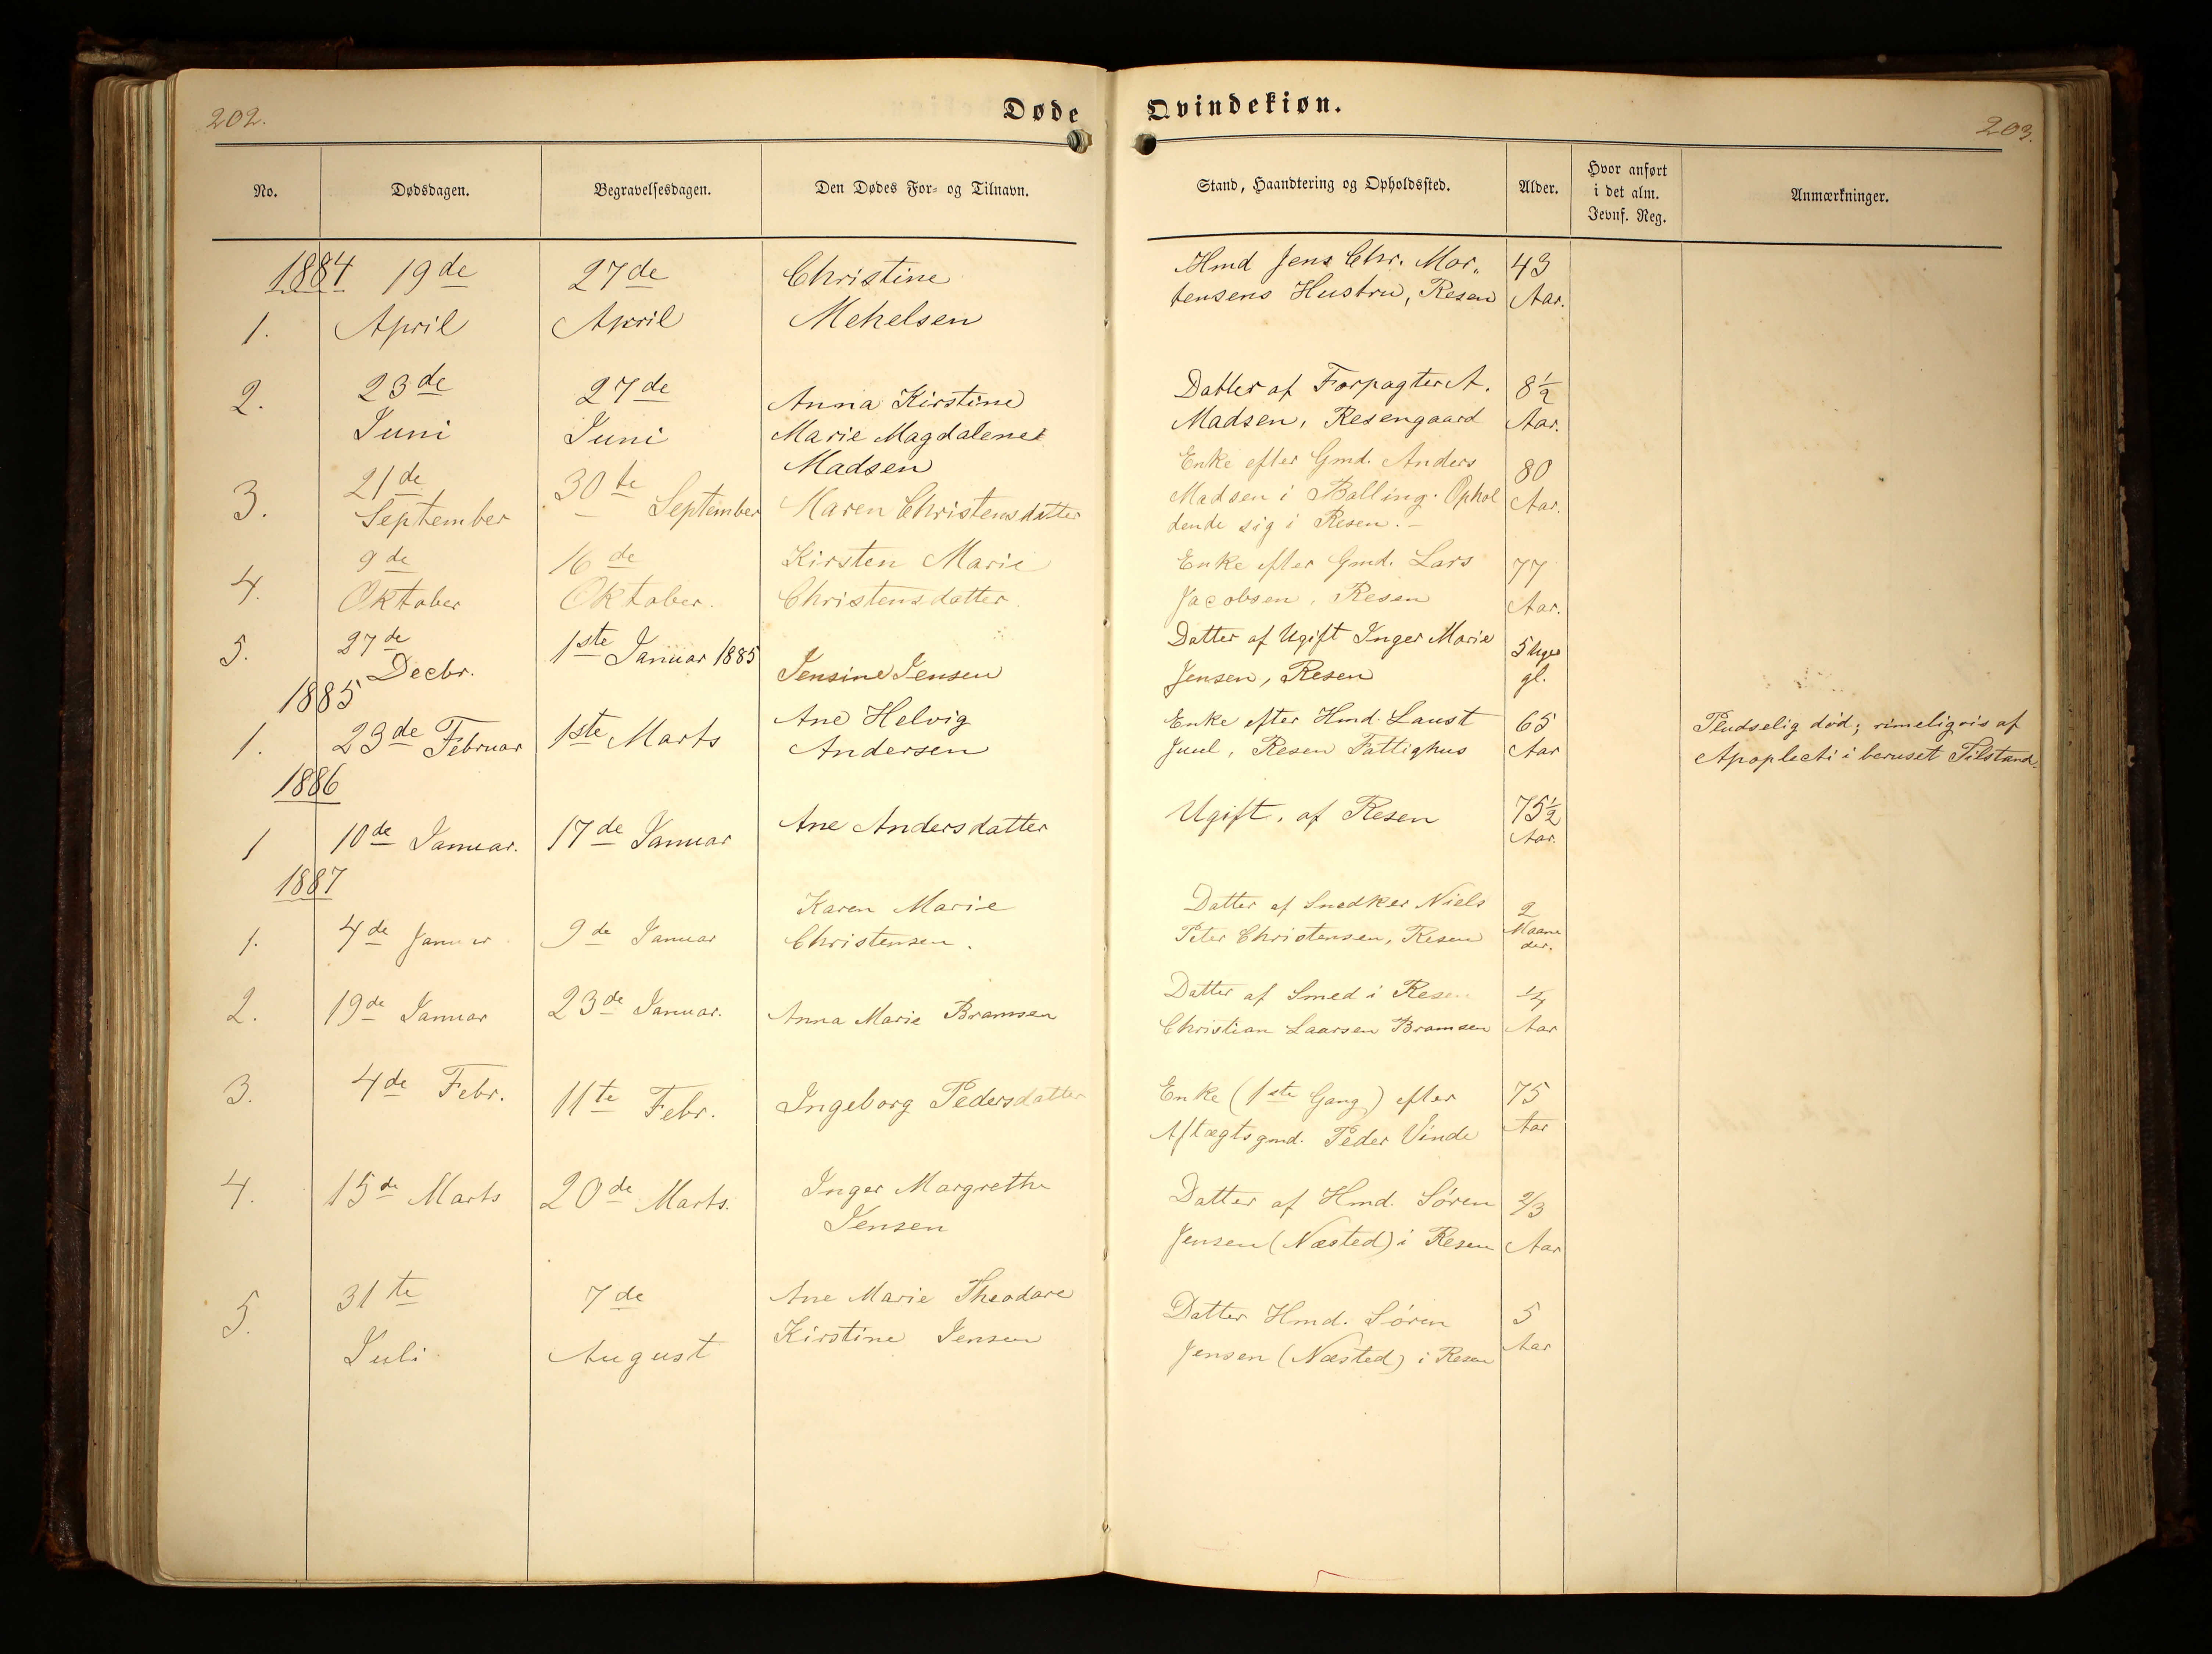 202.
Døde
Qvindekiøn.
203.
No.
Dødsdagen.
Begravelsesdagen.
Den Dødes For- og Tilnavn.
Stand, Haandtering og Opholdssted.
Alder.
Hvor anført
i det alm.
Jevnf. Reg.
Anmærkninger.
1884 19de 27de Christine Hmd Jens Chr. Mor„ 43
1. April April Mehelsen tensens Hustru, Resen Aar.
2. 23de 27de Anna Kirstine Datter af Forpagter A. 8½
Juni Juni Marie Magdalene Madsen, Resengaard Aar.
Madsen
3. 21de 30te Enke efter Gmd. Anders 80
September September Maren Christensdatter Madsen i Balling. Ophol Aar.
dende sig i Resen.-
4. 9de 16de Kirsten Marie Enke efter Gmd. Lars 77
Oktober Oktober. Christensdatter. Jacobsen, Resen Aar.
5. 27de 1ste Januar 1885 Datter af Ugift Inger Marie 5 Uger
Decbr. Jensine Jensen Jensen, Resen gl.
1885
1. 23de Februar 1ste Marts Ane Helvig Enke efter Hmd. Laust 65 Pludselig død; rimeligvis af
Andersen Juul, Resen Fattighus Aar Apoplecti i beruset Tilstand.
1886
1 10de Januar. 17de Januar Ane Andersdatter Ugift, af Resen 75½
Aar.
1887
1. 4de Januar 9de Januar Karen Marie Datter af Snedker Niels 2
Christensen. Peter Christensen, Resen Maane
der.
2. 19de Januar 23de Januar. Anna Marie Bramsen Datter af Smed i Resen ¼
Christian Laarsen Bramsen Aar
3. 4de Febr. 11te Febr. Ingeborg Pedersdatter Enke (1ste Gang) efter 75
Aftægtsgmd. Peder Vinde Aar
4. 15de Marts 20de Marts. Inger Margrethe Datter af Hmd. Søren 2/3
Jensen Jensen (Næsted) i Resen Aar
5. 31te 7de Ane Marie Theodare Datter Hmd. Søren 5
Juli August Kirstine Jensen Jensen (Næsted) i Resen Aar